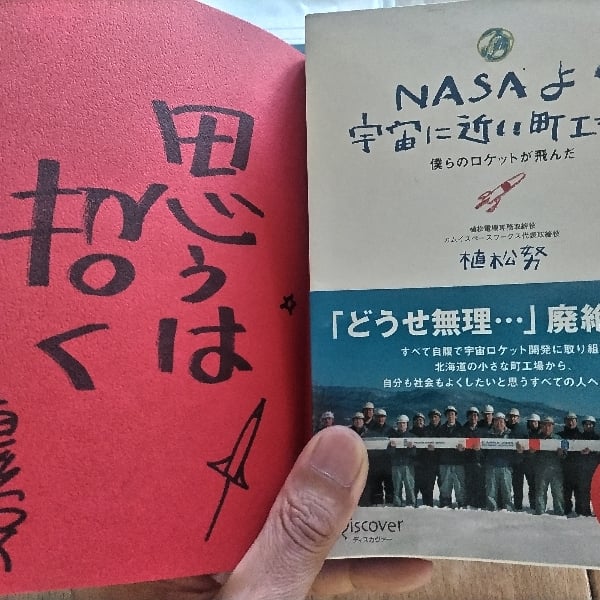 思うは
招く
NASAよ
宇宙に近い町工
僕らのロケットが飛んだ
植松電機専務取締役
カムイスペースワークス代表取締役
植松努
「どうせ無理…」廃絶
すべて自腹で宇宙ロケット開発に取り組
北海道の小さな町工場から、
自分も社会もよくしたいと思うすべての人へ
Discover
ディスカヴァー